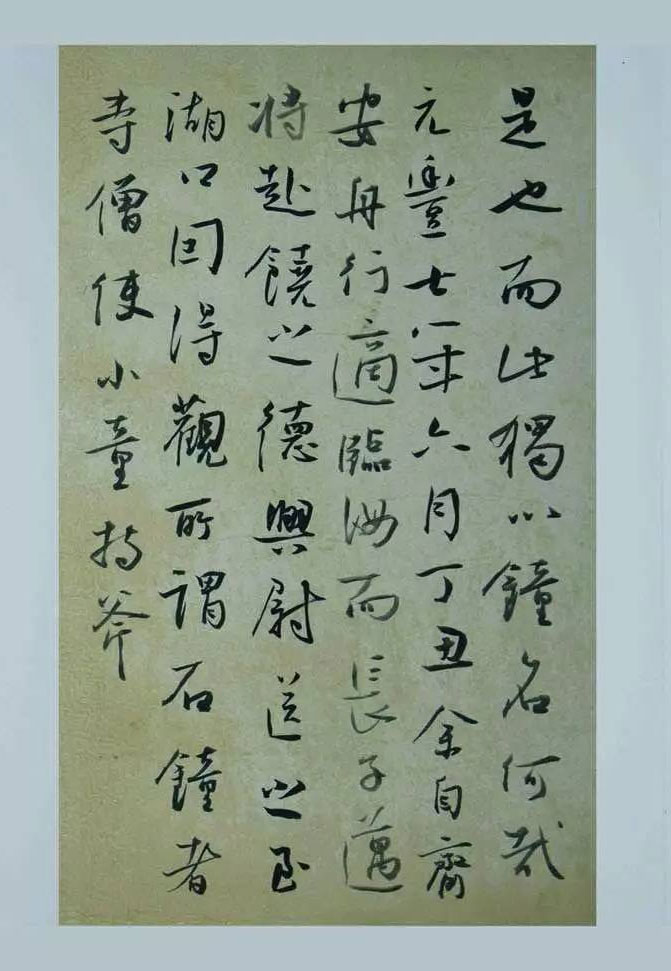 是也而此獨以鐘名何哉
元豐七年六月丁丑余自齊
安舟行適臨汝而長子邁
將赴饒之德興尉送之至
湖口因得觀所謂石鐘者
寺僧使小童持斧